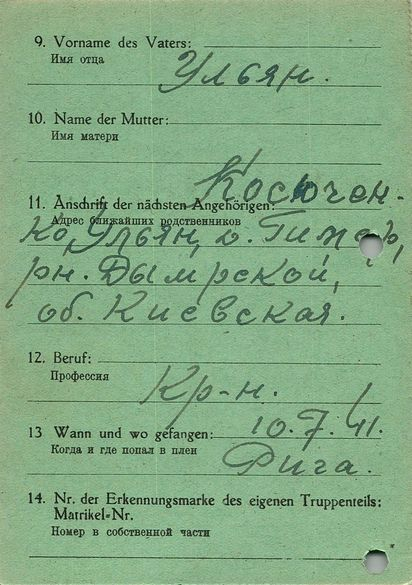 9. Vorname des Vaters:
Имя отца
Ульян.
10. Name der Mutter:
Имя матери
Косючен-
11. Anschrift der nächsten Angehörigen:
Адрес ближайших родственников
ко, Ульян, д.
рн. Дымрской,
об. Киевская.
12. Beruf:
Профессия
Кр-н.
13 Wann und wo gefangen: 10.7.41.
Когда и где попал в плен
Рига.
14. Nr. der Erkennungsmarke des eigenen Truppenteils:
Matrikel-Nr.
Номер в собственной части